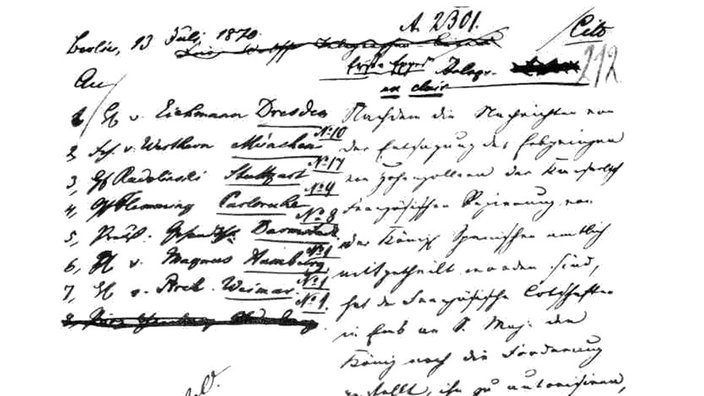 A. 2301.
Cito
Berlin, 13 Juli 1870.
212
An
en clair
1, H v. Eichmann Dresden
No 10
2, Frh. v. Werthern München
No 17
3, Gf Radolinski Stuttgart
No 4
4, Gf Flemming Carlsruhe
No 8
5, Gesandtsch. Darmstadt
No 1
6, H v. Magnus Hamburg
No 1
7, H v. Weimar
No 1.
Nachdem die Nachrichten von
der Entsagung des Erbprinzen
von Hohenzollern der Kaiserlich
Französischen Regierung von
der Königl Spanischen amtlich
mitgetheilt worden sind,
hat der Französische Botschafter
in Ems an S. Maj. den
König noch die Forderung
gestellt, ihn zu autorisiren,